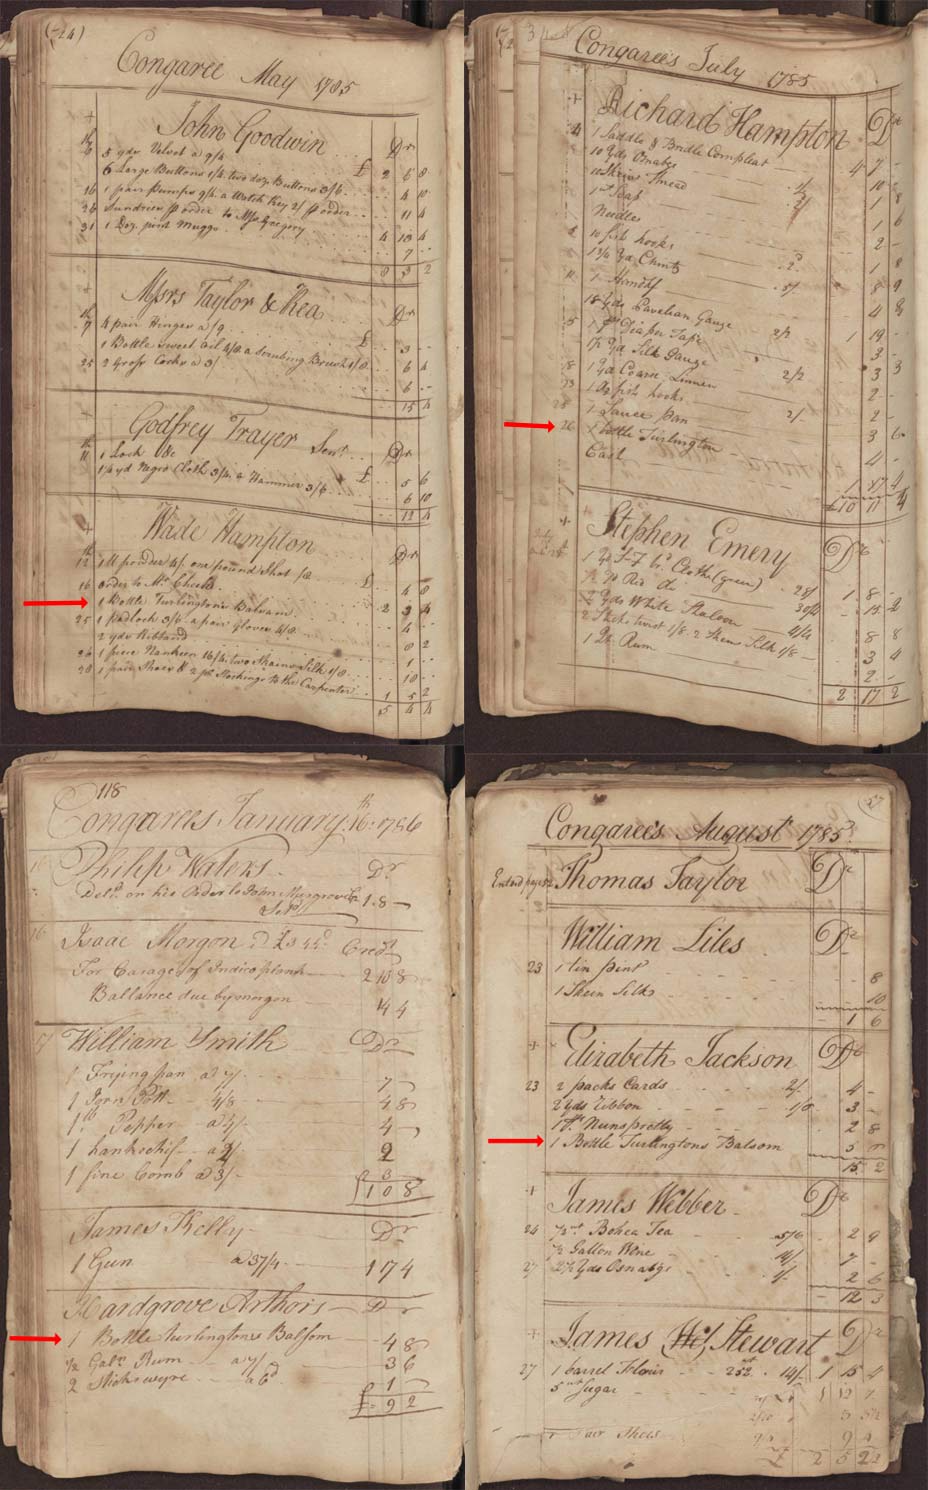 (24)
Congaree May 1785
John Goodwin Dr
5 yds Velvet a 9/4 £ 2 6 8
6 Large Buttons 1/4 two doz Buttons 3/6 4 10
16 1 pair Pumps 9/4 a Watch Key 2/ p order 11 4
26 Sundries p order to Mrs Gregory 4 13 4
31 1 Doz. pint Muggs 7
8 3 2
Messrs Taylor & Rea Dr
7 4 pair Hinges a /9 £ 3
1 Bottle Sweet Oil 4/8 a Scrubing Brush 1/8 6 4
25 2 Gross Corks a 3/ 6
15 4
Godfrey Trayer Senr. Dr
11 1 Lock &c £ 5 6
1 yd Negro Cloth 3/4 a Hammer 3/6 6 10
12 4
Wade Hampton Dr
12 1 lb powder 4/ one pound Shot /8 £ 4 8
16 order to Mr. 2 4
1 Bottle Turlingtons Balsam 4
25 1 padlock 3/6 a pair Gloves 4/8 8 2
2 yds Ribband 1
26 1 piece Nankeen 16/4 two Skains Silk 1/8 18
28 1 pair Shoes & 2 pr Stockings to the Carpenter 1 5 2
5 4 4
Congarees July 1785
Richard Hampton Dr
1 Saddle & Bridle Compleat 4 7
10 Yds Osnabgs 1/ 10
Skein Thread 1 8
1 lb Soap 1 6
Needles 2
10 fish hooks 2d 1 8
1 3/4 Yd Chintz 5/ 8 9
1 Handkf 4 8
18 Yds Pavelian Gauze 2/2 1 19
1 ps Diaper Tape 3
1 1/2 Yd Silk Gauze 2/2 3 3
1 Yd Coarse Linnen 2
1 Dz fish hooks 2/ 2
1 Sauce Pan 3 6
26 1 bottle Turlington 4
Cash 1 17 4
£10 11 4
Stephen Emery Dr
Cloth (green) 28/ 1 8
Red do 30/4 15 2
2 Yds White Shaloon 4/4 8 8
2 Sticks twist 1/8. 2 Skens Silk 1/8 3 4
1 Qt Rum 2
2 17 2
118
Congarees January 16th 1786
Philip Waters Dr
Deld. on his Order to John Musgrove 1 8
Isaac Morgon Credt
For Carage of Indico plank 2 10 8
Ballance due by morgon 4 4
17 William Smith Dr
1 Frying pan a 7/ 7
1 Iorn Pott 4/8 4 8
1 lb Pepper a 4/ 4
1 hankechif a 2/ 2
1 fine Comb a 3/ 3
£1 0 8
James Kelly Dr
1 Gun a 37/4 1 17 4
Hardgrove Arthors Dr
1 Bottle turlingtons Balsom 4 8
1/2 Galn Rum a 7/ 3 6
2 Sticks wyre a 6d 1
£ 9 2
57
Congarees August 1785
Entred page Thomas Taylor Dr
William Liles Dr
23 1 tin pint 8
1 Skein Silk 10
1 6
Elizabeth Jackson Dr
23 2 packs Cards 2/ 4
2 yds Ribbon 1/6 3
Nunspretty 2 8
1 Bottle Turlingtons Balsom 5
15 2
James Webber Dr
24 Bohea Tea 5/6 2 9
1/2 Gallon Wine 14/ 7
27 2 1/2 Yds Osnabgs 1/ 2 6
12 3
James Stewart Dr
27 1 barrel Flour 252 14/ 1 15 4
5 wt Sugar
Pair Shoes